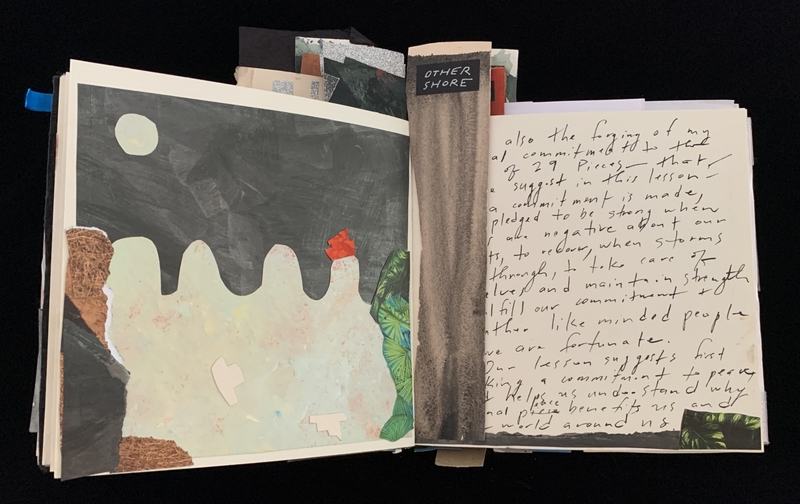 OTHER
SHORE
also the forging of my
al commitment to the
of 29 Pieces— that,
suggest in this lesson—
a commitment is made,
pledged to be strong when
are negative about our
ts, to rebour, when storms
through, to take care of
elves and maintain strength
lfill our commitment &
other like minded people
we are fortunate.
Our lesson suggests first
king a commitment to peace,
helps us understand why
nal peace benefits us and
world around us.